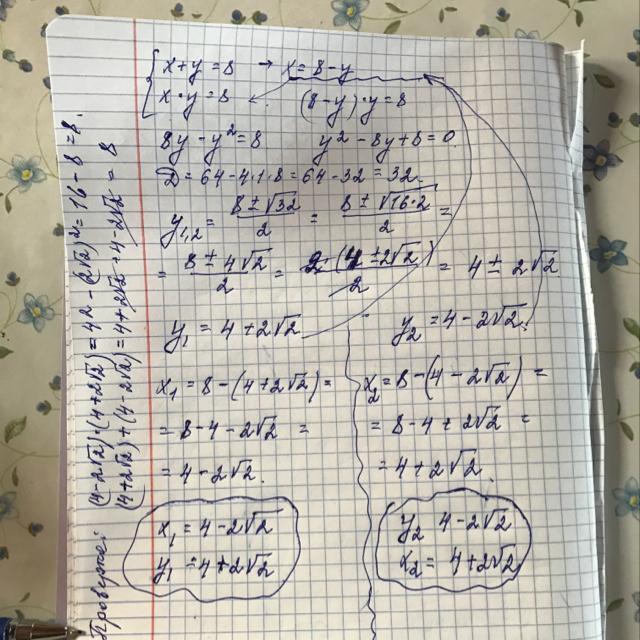 x+y=8 → x=8-y
x·y=8 (8-y)·y=8
8y-y²=8 y²-8y+8=0
D=64-4·1·8=64-32=32.
y₁,₂ = (8±√32)/2 = (8±√16·2)/2 =
= (8±4√2)/2 = 2·(4±2√2)/2 = 4±2√2
y₁=4+2√2 y₂=4-2√2.
x₁=8-(4+2√2)= x₂=8-(4-2√2)=
=8-4-2√2= =8-4+2√2=
=4-2√2. =4+2√2.
x₁=4-2√2 y₂ 4-2√2
y₁=4+2√2 x₂=4+2√2
Проверка: (4-2√2)(4+2√2)=42-(2√2)²=16-8=8.
(4+2√2)+(4-2√2)=4+2√2+4-2√2=8